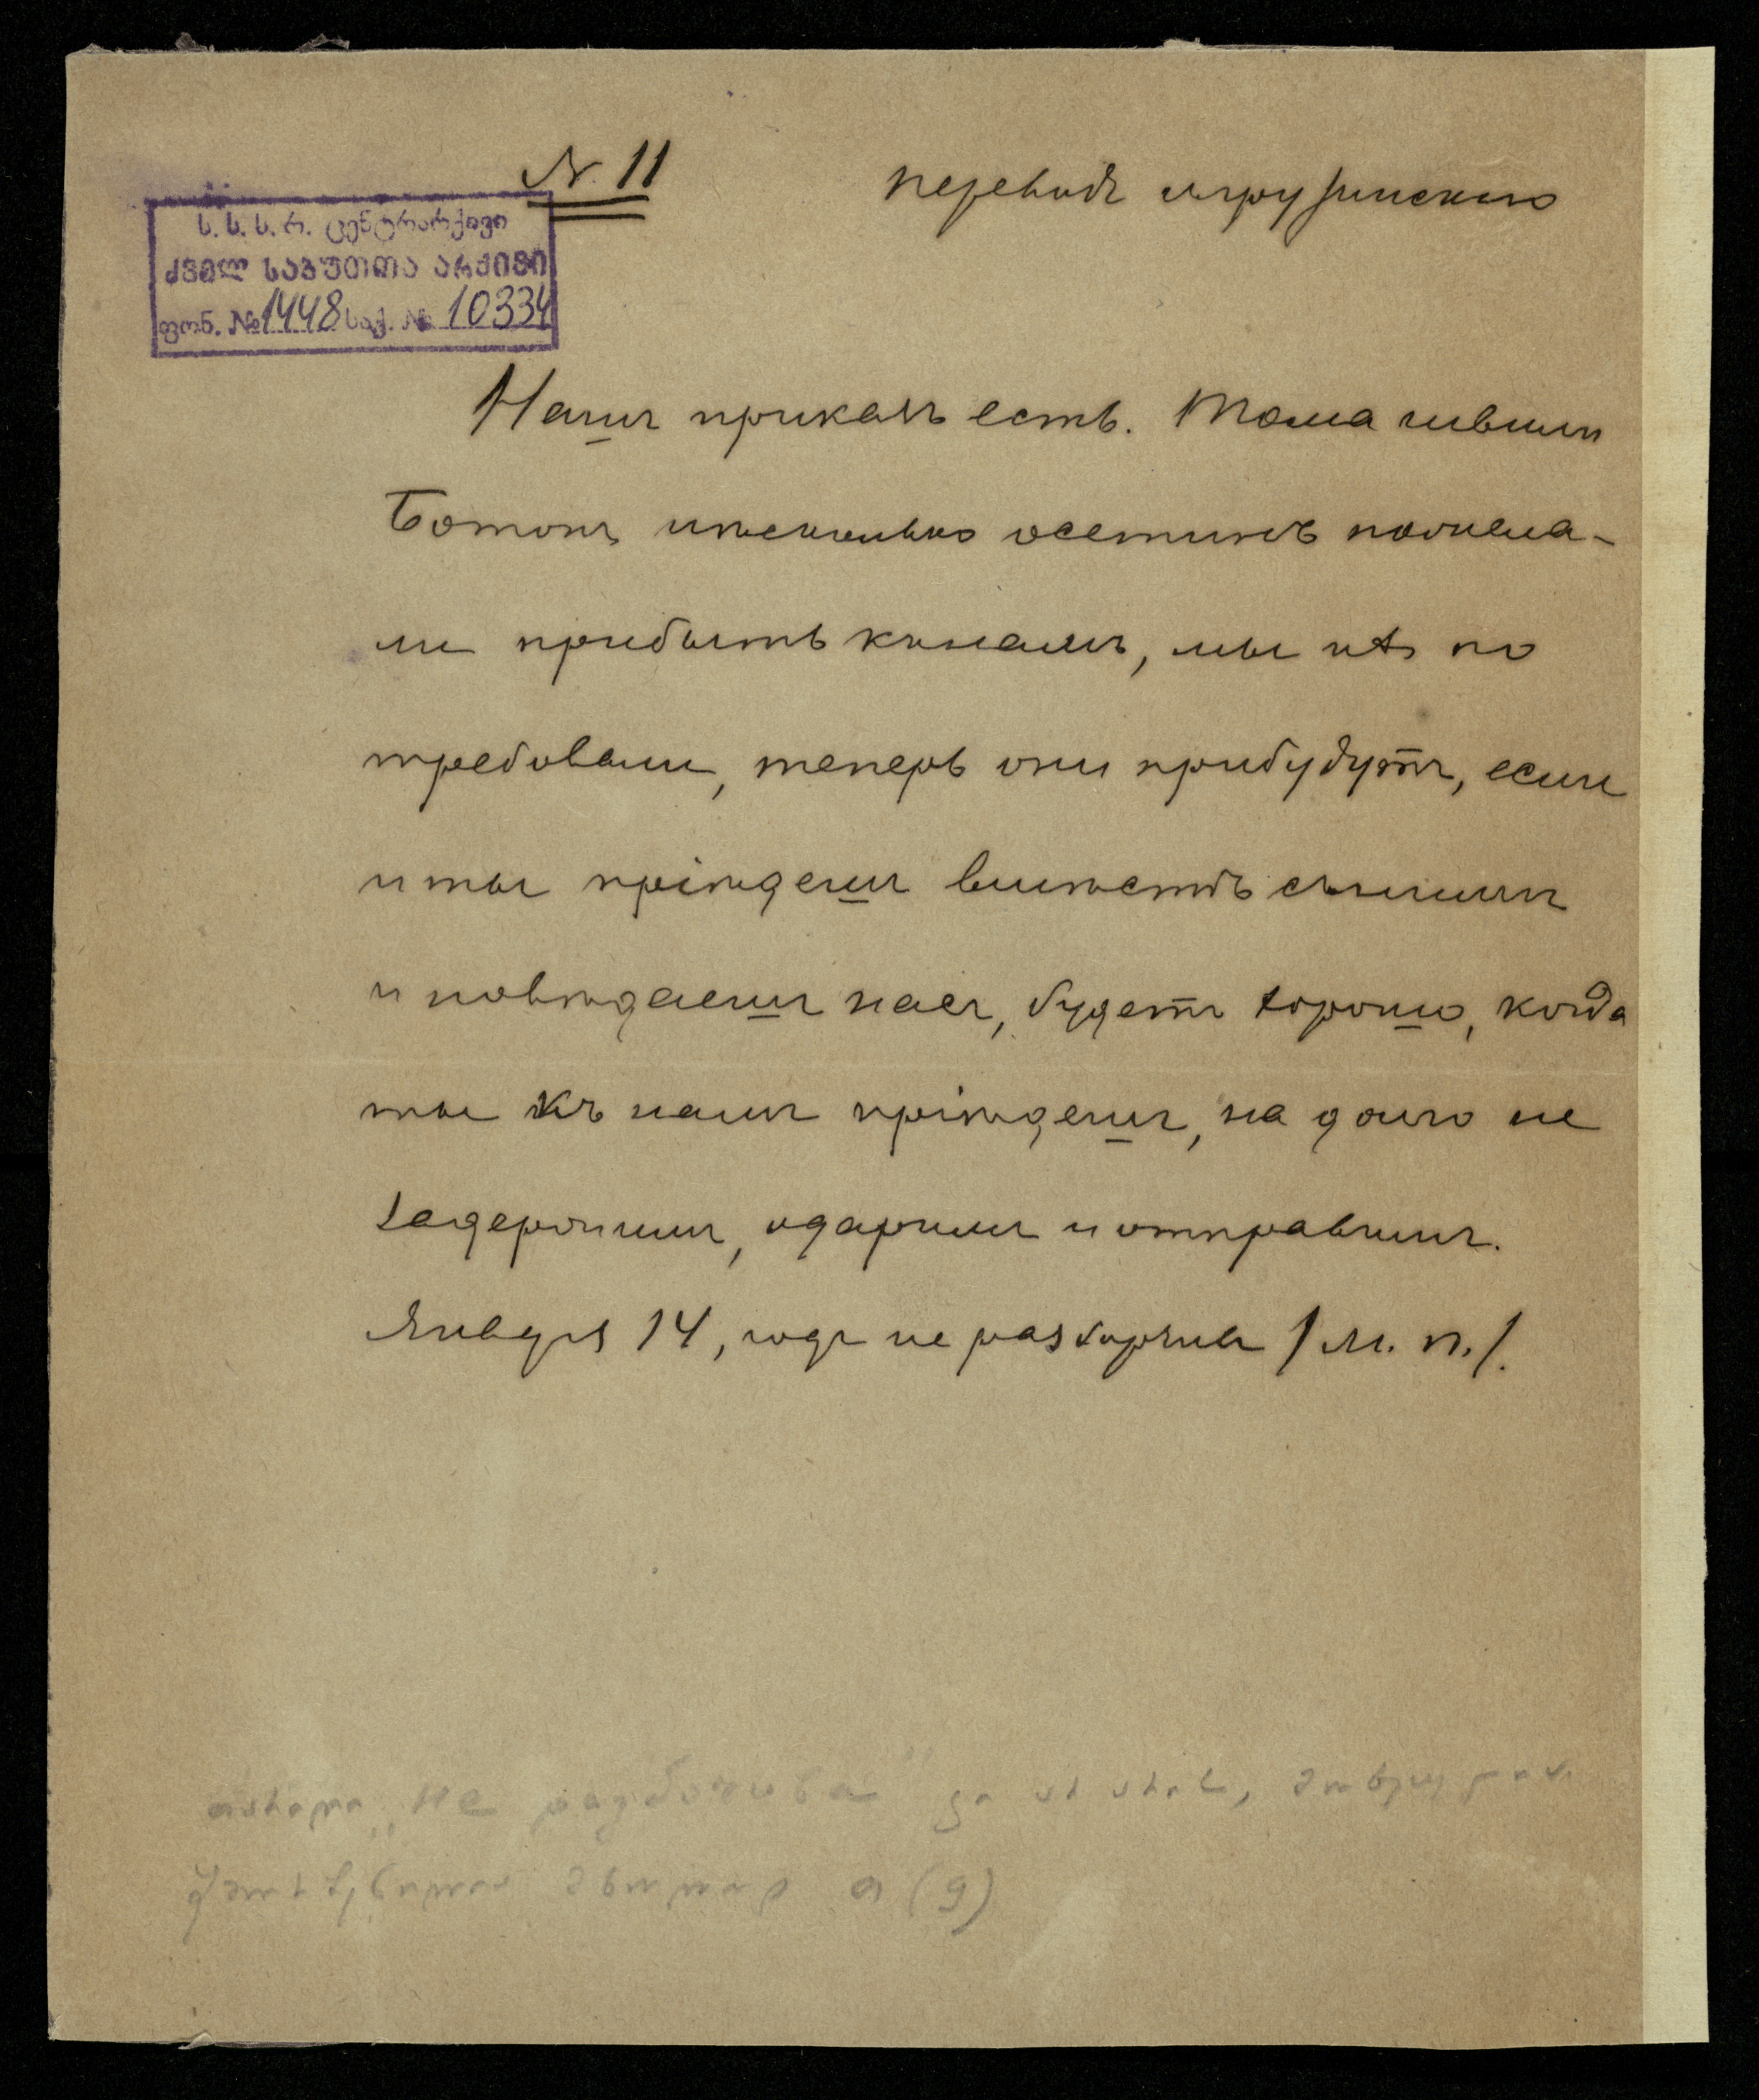 N. 11
переводъ съ грузинскаго
ს. ს. ს. რ. ცენტრარქივი
ძველ საბუთთა არქივი
ფონ. №1448 საქ. № 10334
Нашъ приказъ есть. Тома
Ботонъ и нѣсколько осетинъ пожела-
ли прибыть къ намъ, мы ихъ по
требовали, теперь они прибудутъ, если
и ты пріѣдешь вмѣстѣ съ ними
и повидаешь насъ, будетъ хорошо, когда
ты къ намъ пріѣдешь, на долго не
задержимъ, одаримъ и отправимъ.
Января 14, годъ не разборчивъ /м. п./.